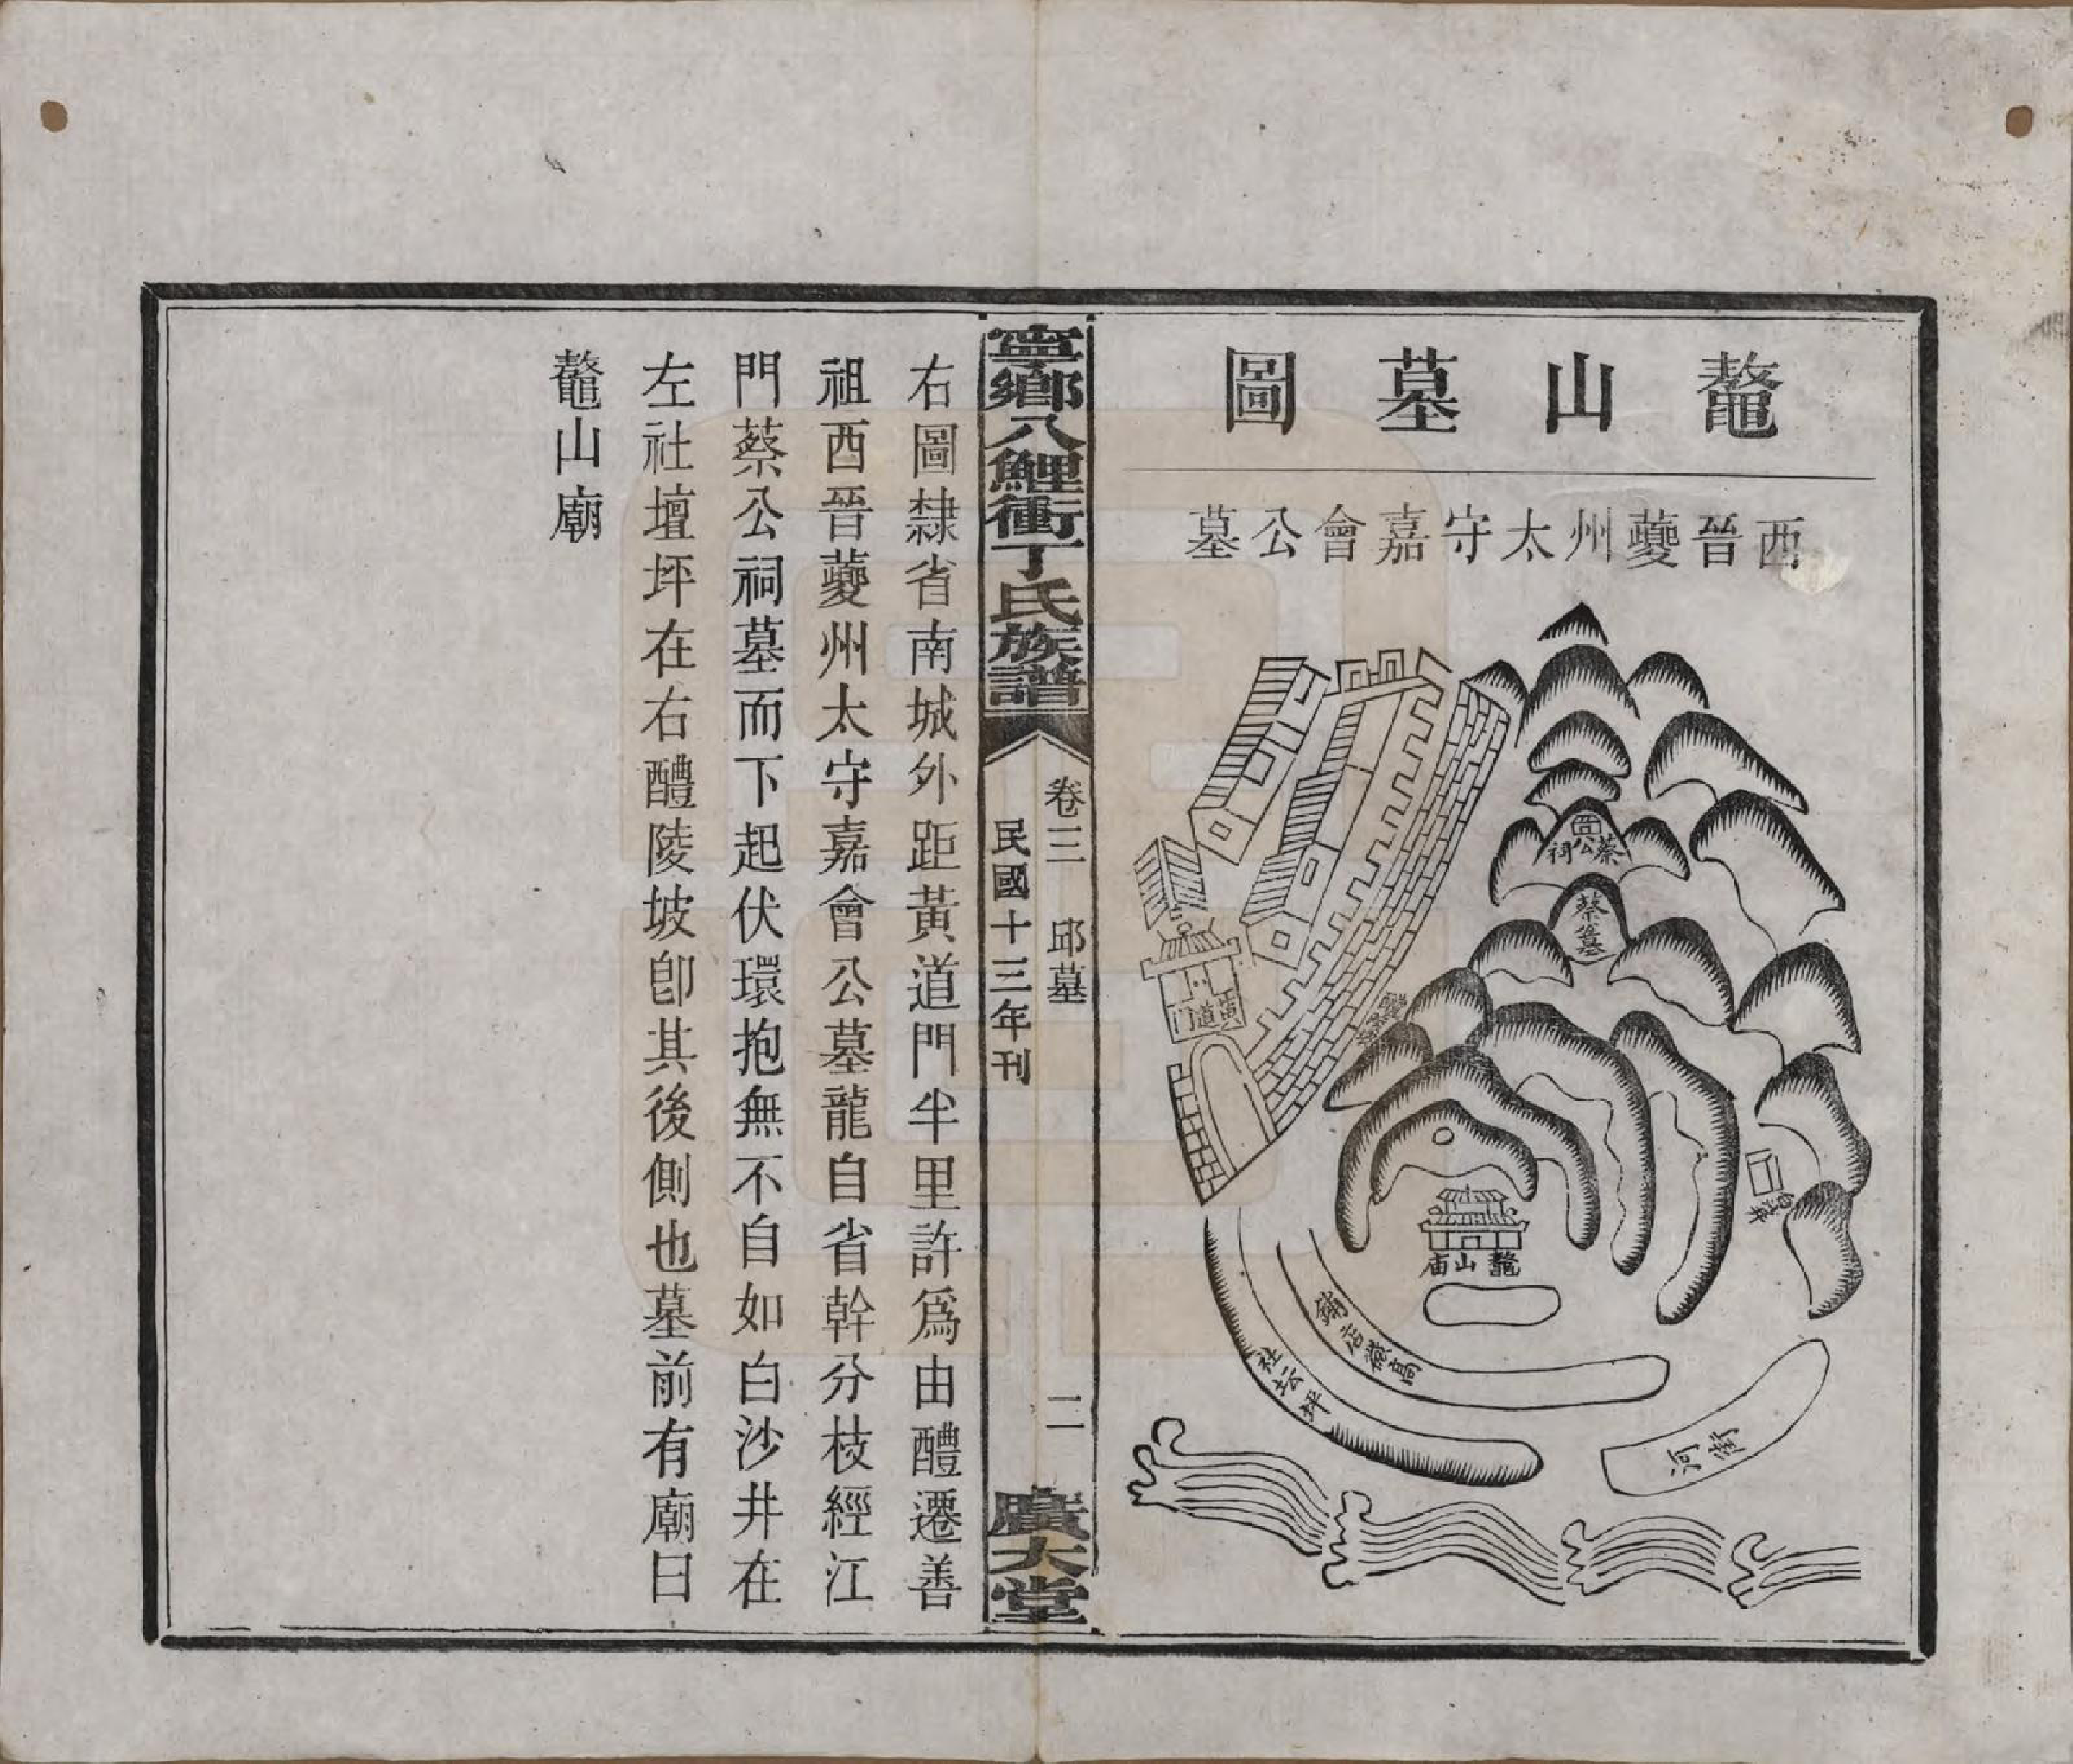 鼇山墓圖
西晉夔州太守嘉會公墓
蔡公祠
蔡墓
醴陵坡
黃道門
白沙井
鼇山庙
高嶺店鋪
社坛坪
衝河
寧鄉八鯉衝丁氏族譜
卷三 邱墓 二
民國十三年刊
廣大堂
右圖隸省南城外距黃道門半里許爲由醴遷善
祖西晉夔州太守嘉會公墓龍自省幹分枝經江
門蔡公祠墓而下起伏環抱無不自如白沙井在
左社壇坪在右醴陵坡卽其後側也墓前有廟曰
鼇山廟